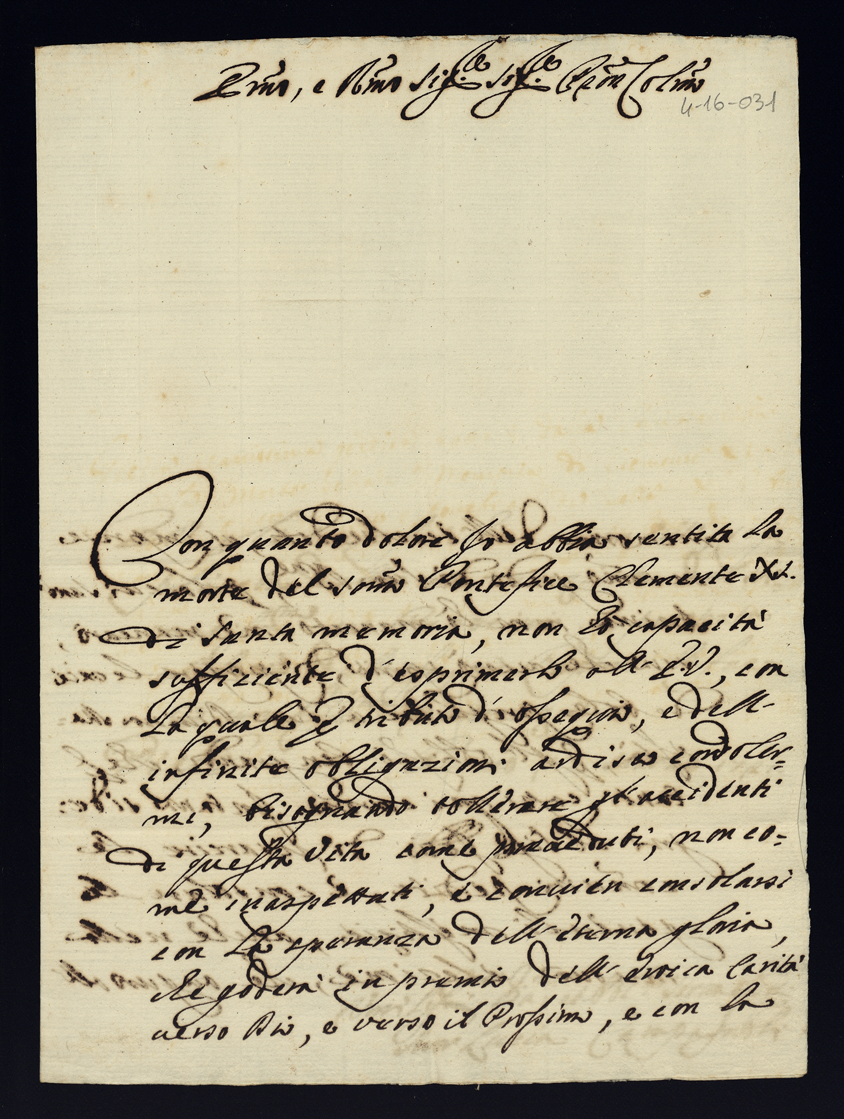 Emo, e Rmo Sig.re Sig.re Pron Colmo
4-16-031
Con quanto dolore Io abbia sentita la
morte del somo Pontefice Clemente XI.
di santa memoria, non hò capacità
sufficiente d'esprimerlo all' E.V., con
la quale p tributo d'ossequio, e dell'
infinite obligazioni ardisco condoler=
mi, bisognando tollerare gl'accidenti
di questa vita come preveduti, non co=
me inaspettati, e convien consolarsi
con la speranza dell'eterna gloria,
che goderà in premio dell'eroica Carità
verso Dio, e verso il Prossimo, e con la